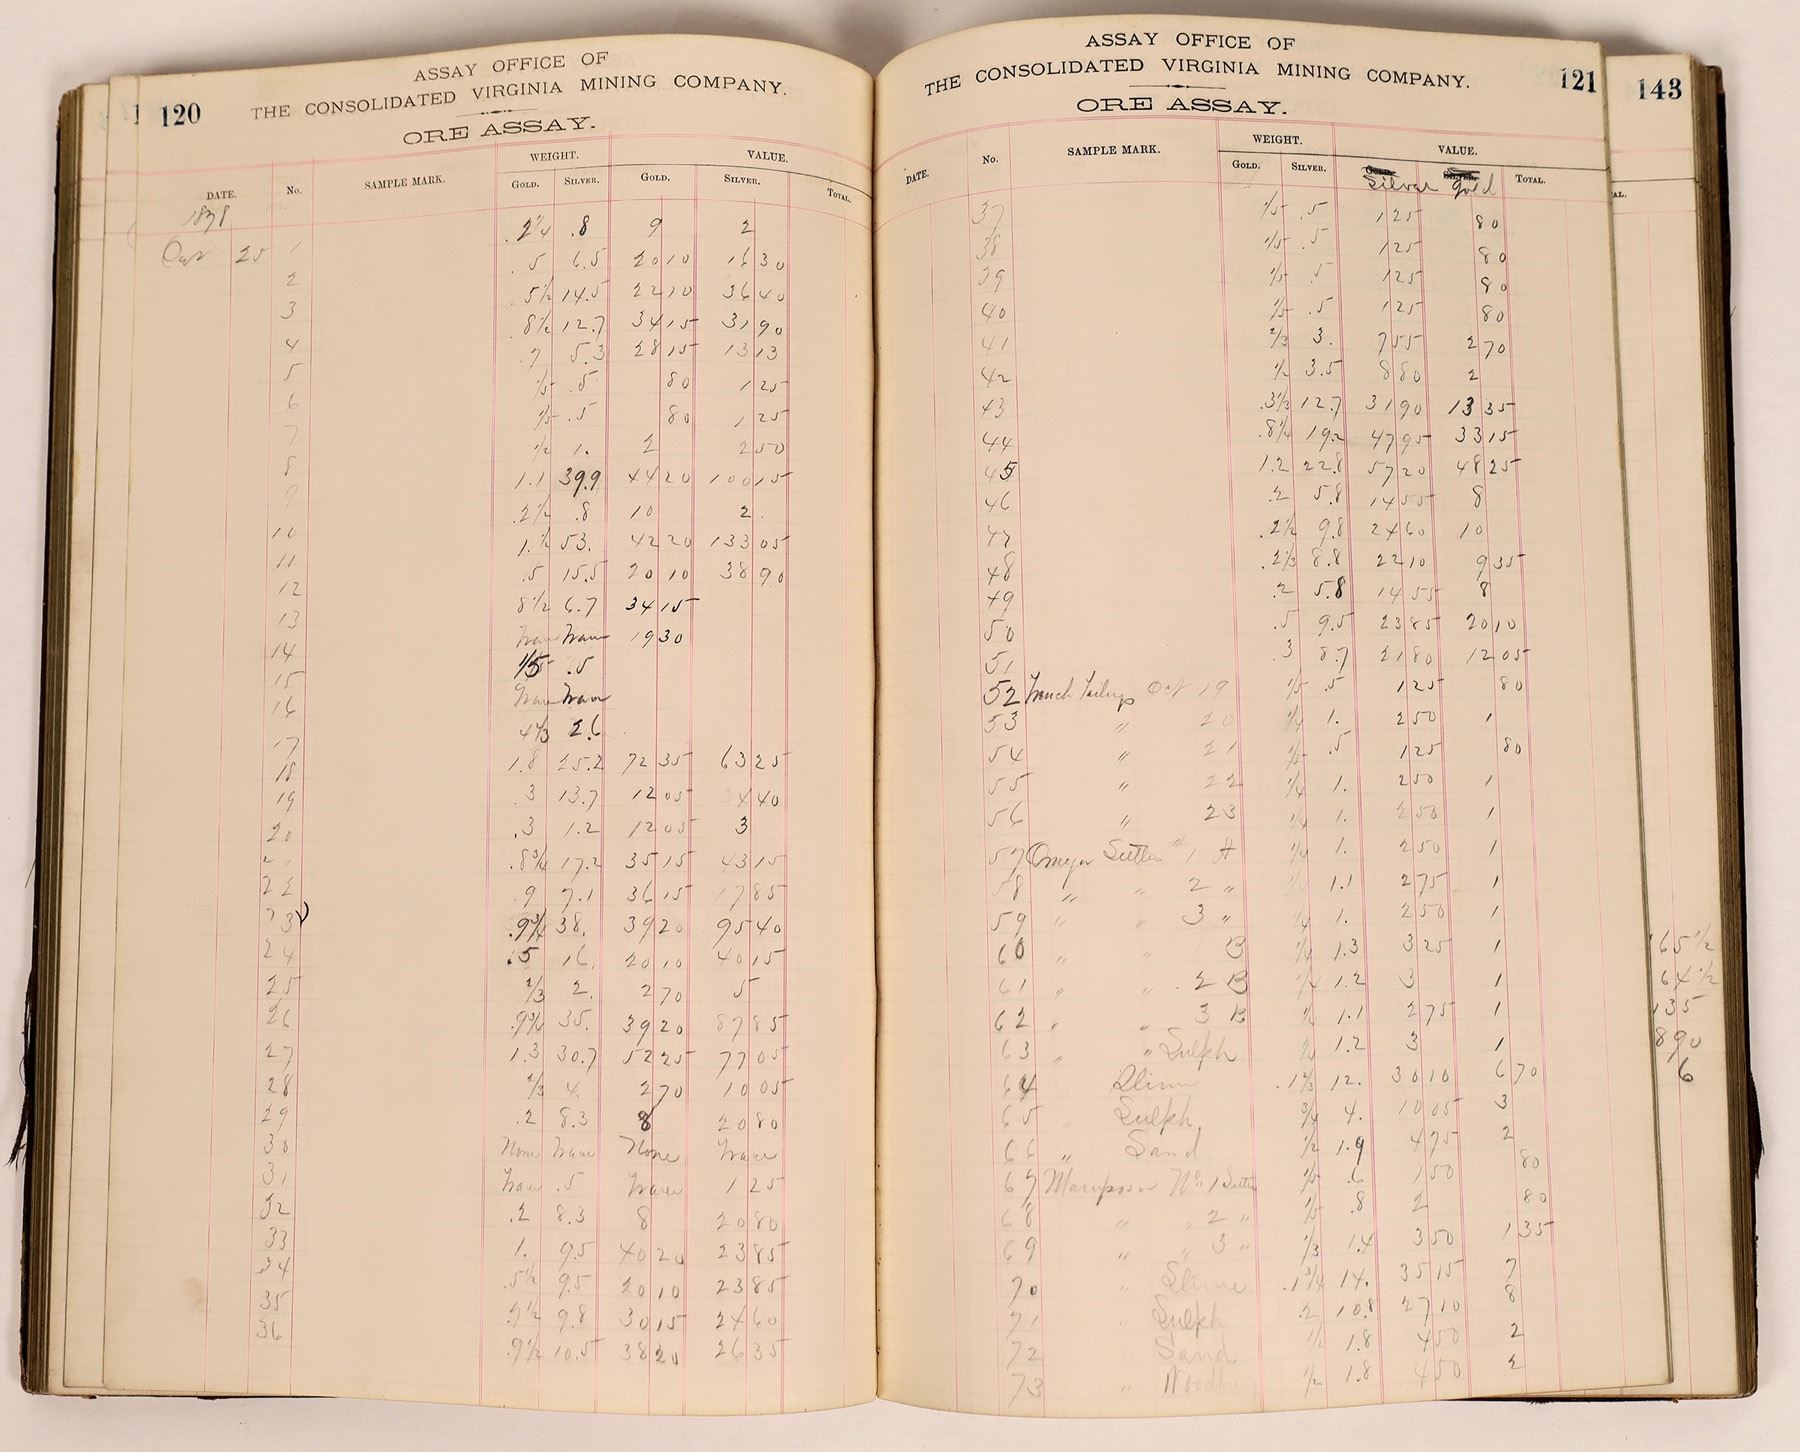 120
ASSAY OFFICE OF
THE CONSOLIDATED VIRGINIA MINING COMPANY.
ORE ASSAY.
WEIGHT. VALUE.
DATE. No. SAMPLE MARK. GOLD. SILVER. GOLD. SILVER. TOTAL.
1878
.2 1/4 .8 9 2
25 1 .5 6.5 20 10 16 30
2 .5 1/2 14.5 22 10 36 40
3 .8 1/2 12.7 34 15 31 90
4 .7 5.3 28 15 13 13
5 1/5 .5 80 1 25
6 1/5 .5 80 1 25
7 1/2 1. 2 2 50
8 1.1 39.9 44 20 100 15
9 .2 1/2 .8 10 2
10 1.1/2 53. 42 20 133 05
11 .5 15.5 20 10 38 90
12 8 1/2 6.7 34 15
13 Trace Trace 19 30
14 1/5 .5
15 Trace Trace
16 4 1/3 2.6
17 1.8 25.2 72 35 63 25
18 .3 13.7 12 05 34 40
19 .3 1.2 12 05 3
20 .8 3/4 17.2 35 15 43 15
21 .9 7.1 36 15 17 85
22 .9 3/4 38. 39 20 95 40
23 .5 16. 20 10 40 15
24 2/3 2. 2 70 5
25 .9 3/4 35. 39 20 87 85
26 1.3 30.7 52 25 77 05
27 2/3 4. 2 70 10 05
28 .2 8.3 8 20 80
29 None Trace None Trace
30 Trace .5 Trace 1 25
31 .2 8.3 8 20 80
32 1. 9.5 40 20 23 85
33 .5 1/2 9.5 20 10 23 85
34 .7 1/2 9.8 30 15 24 60
35 .9 1/2 10.5 38 20 26 35
36
121
ASSAY OFFICE OF
THE CONSOLIDATED VIRGINIA MINING COMPANY.
ORE ASSAY.
WEIGHT. VALUE.
DATE. No. SAMPLE MARK. GOLD. SILVER. Silver Gold TOTAL.
37 1/5 .5 1 25 80
38 1/5 .5 1 25 80
39 1/5 .5 1 25 80
40 1/5 .5 1 25 80
41 2/3 3. 7 55 2 70
42 1/2 3.5 8 80 2
43 .3 1/3 12.7 31 90 13 35
44 .8 1/4 19.2 47 95 33 15
45 1.2 22.8 57 20 48 25
46 .2 5.8 14 55 8
47 .2 1/2 9.8 24 60 10
48 .2 1/3 8.8 22 10 9 35
49 .2 5.8 14 55 8
50 .5 9.5 23 85 20 10
51 .3 8.7 21 80 12 05
52 Tailings Oct 19 1/5 .5 1 25 80
53 " 20 1/4 1. 2 50 1
54 " 21 1/5 .5 1 25 80
55 " 22 1/4 1. 2 50 1
56 " 23 1/4 1. 2 50 1
57 Omega Settler #1 A 1/4 1. 2 50 1
58 " " 2 " 1/4 1.1 2 75 1
59 " " 3 " 1/4 1. 2 50 1
60 " " B 1/4 1.3 3 25 1
61 " " 2 B 1/4 1.2 3 1
62 " " 3 B 1/4 1.1 2 75 1
63 " " Sulph 1/4 1.2 3 1
64 Slime .1 2/3 12. 30 10 6 70
65 " Sulph. 3/4 4. 10 05 3
66 " Sand 1/2 1.9 4 75 2
67 Mariposa No. 1 Settler 1/5 .6 1 50 80
68 " " 2 " 1/5 .8 2 80
69 " " 3 " 1/3 1.4 3 50 1 35
70 " Slime .1 3/4 14. 35 15 7
71 Sulph .2 10.8 27 10 8
72 " Sand 1/2 1.8 4 50 2
73 " 1/2 1.8 4 50 2
143
AL.
65 1/2
64 1/2
135
890
6